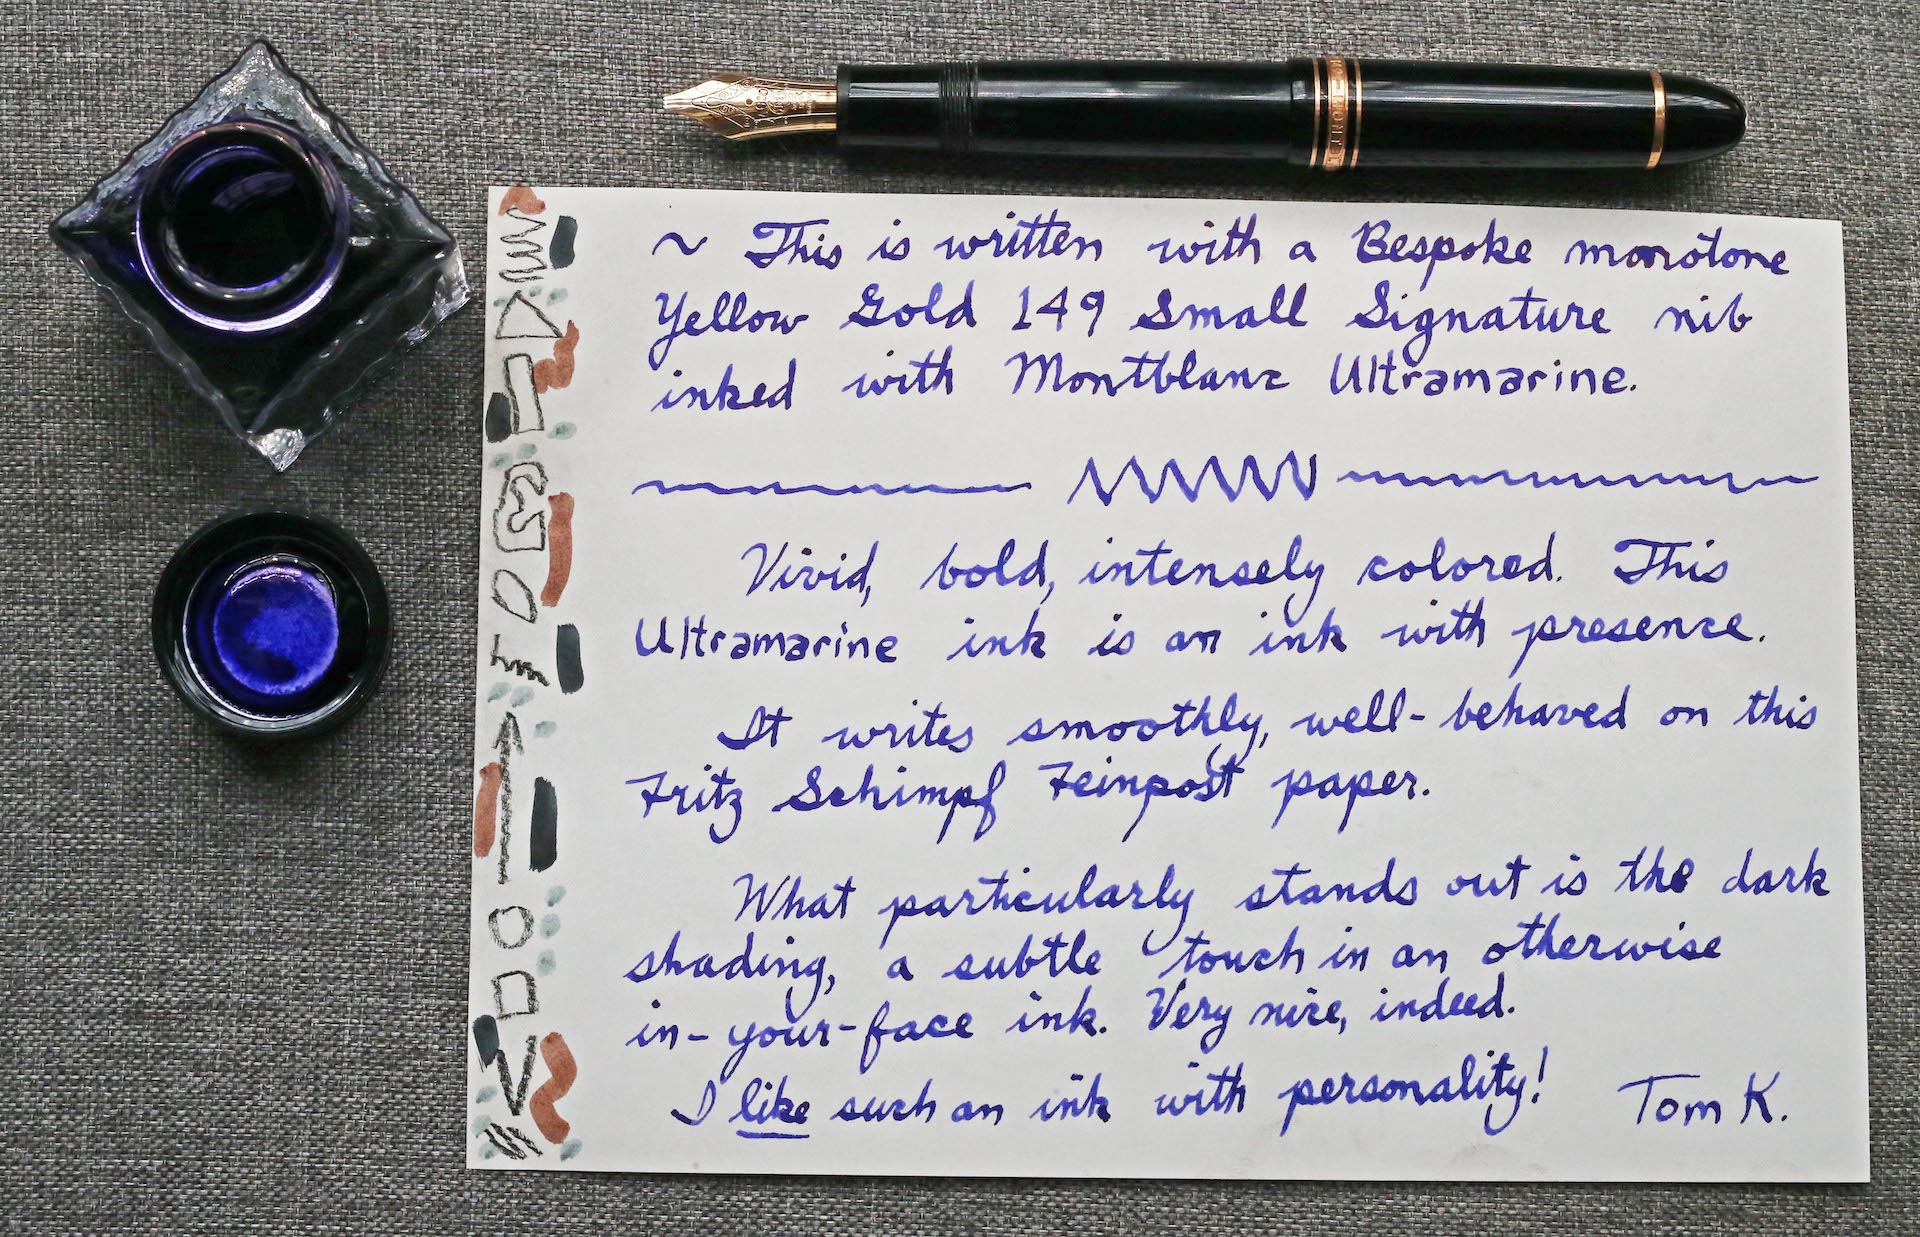 MONTBLANC
~ This is written with a Bespoke monotone
Yellow Gold 149 Small Signature nib
inked with Montblanc Ultramarine.
Vivid, bold, intensely colored. This
Ultramarine ink is an ink with presence.
It writes smoothly, well-behaved on this
Fritz Schimpf Feinpost paper.
What particularly stands out is the dark
shading, a subtle touch in an otherwise
in-your-face ink. Very nice, indeed.
I like such an ink with personality! Tom K.